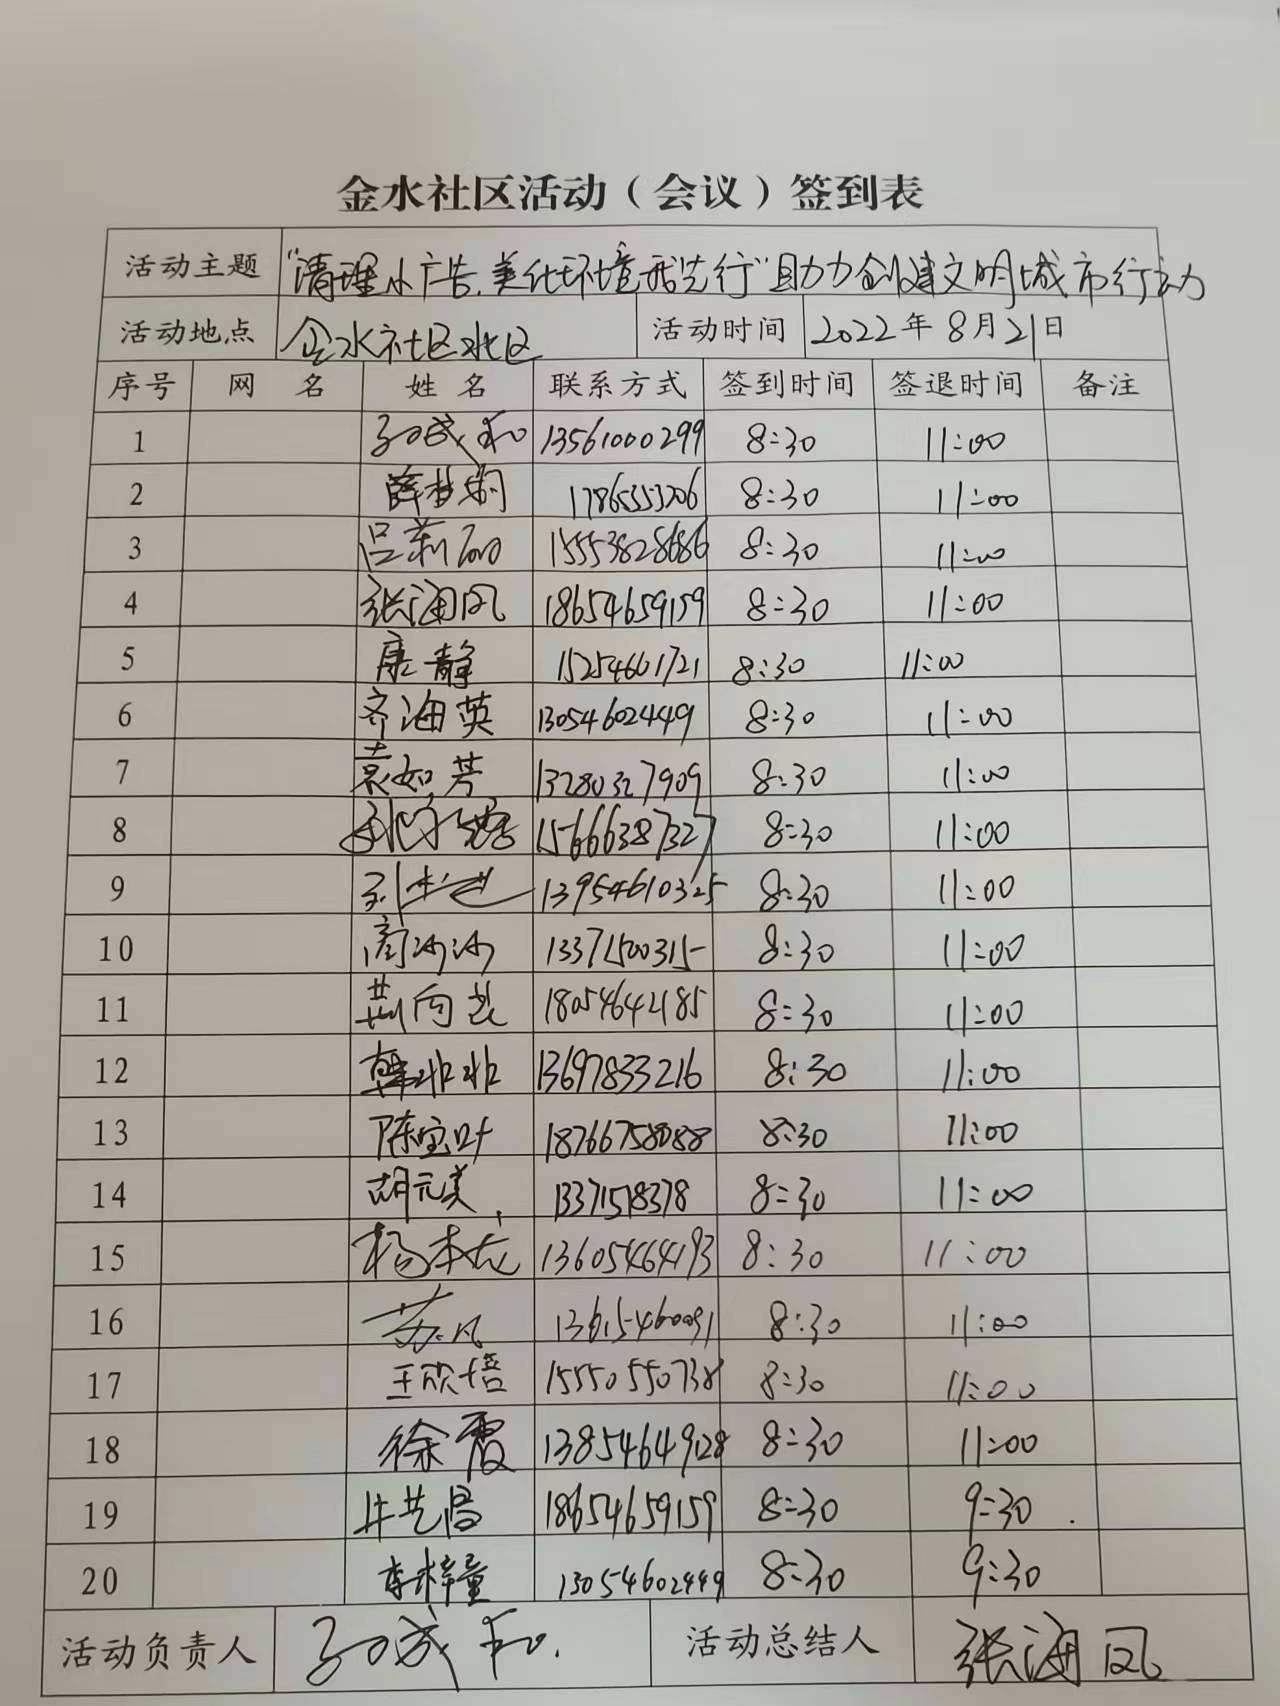 金水社区活动（会议）签到表
活动主题 "清理小广告,美化环境我先行"助力创建文明城市行动
活动地点 金水社区水区 活动时间 2022年8月21日
序号 网名 姓名 联系方式 签到时间 签退时间 备注
1 13561000299 8:30 11:00
2 17865353206 8:30 11:00
3 15553828686 8:30 11:00
4 张海凤 18654659159 8:30 11:00
5 康静 15254601721 8:30 11:00
6 齐海英 13054602449 8:30 11:00
7 袁如芳 13280327909 8:30 11:00
8 15666387327 8:30 11:00
9 13954610325 8:30 11:00
10 13371500315 8:30 11:00
11 18054642185 8:30 11:00
12 韩非非 13697833216 8:30 11:00
13 陈宝叶 18766758088 8:30 11:00
14 胡元美 8:30 11:00
15 杨本龙 13605464193 8:30 11:00
16 苏凤 13615460091 8:30 11:00
17 王欣悟 15550550738 8:30 11:00
18 徐霞 13854649128 8:30 11:00
19 18654659159 8:30 9:30
20 李梓童 13054602449 8:30 9:30
活动负责人 活动总结人 张海凤